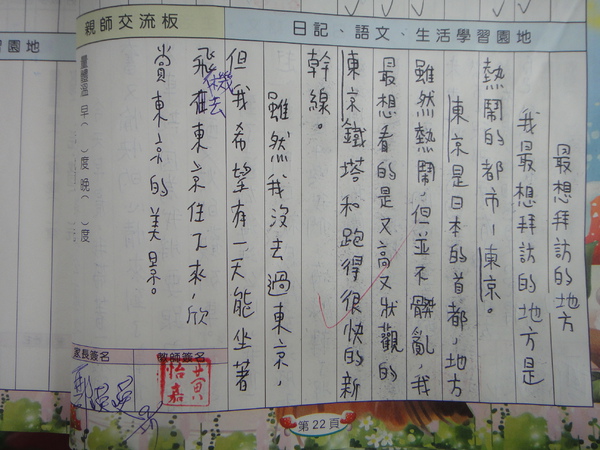 習園地
親師交流板
日記、語文、生活學習園地
最想拜訪的地方
我最想拜訪的地方是
熱鬧的都市—東京。
東京是日本的首都,地方
雖然熱鬧,但並不髒亂,我
最想看的是又高又狀觀的
東京鐵塔和跑得很快的新
幹線。
雖然我沒去過東京,
但我希望有一天能坐著
飛機去東京住下來,欣
賞東京的美景。
量體溫 早( )度 晚( )度
家長簽名
教師簽名
黃怡嘉
第22頁